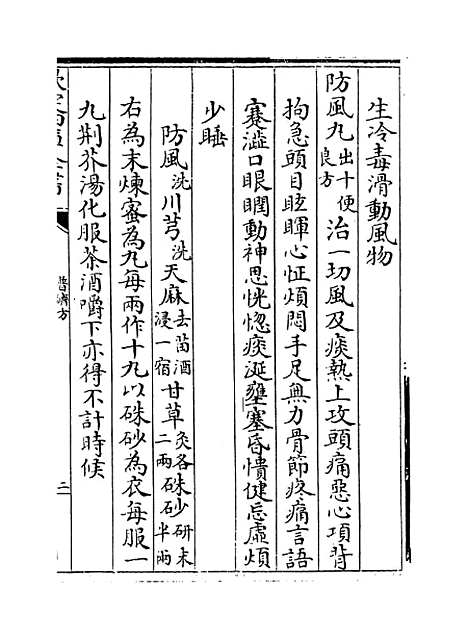 生冷毒滑動風物
防風丸出十便良方治一切風及痰熱上攻頭痛惡心項背
拘急頭目眩暉心怔煩悶手足無力骨節疼痛言語
蹇澁口眼瞤動神思恍惚痰涎壅塞昏憒健忘虛煩
少睡
防風洗川芎洗天麻去苗酒浸一宿甘草炙各二兩硃砂研末半兩
右為末煉蜜為丸每兩作十丸以硃砂為衣每服一
丸荆芥湯化服茶酒嚼下亦得不計時候
普濟方
二